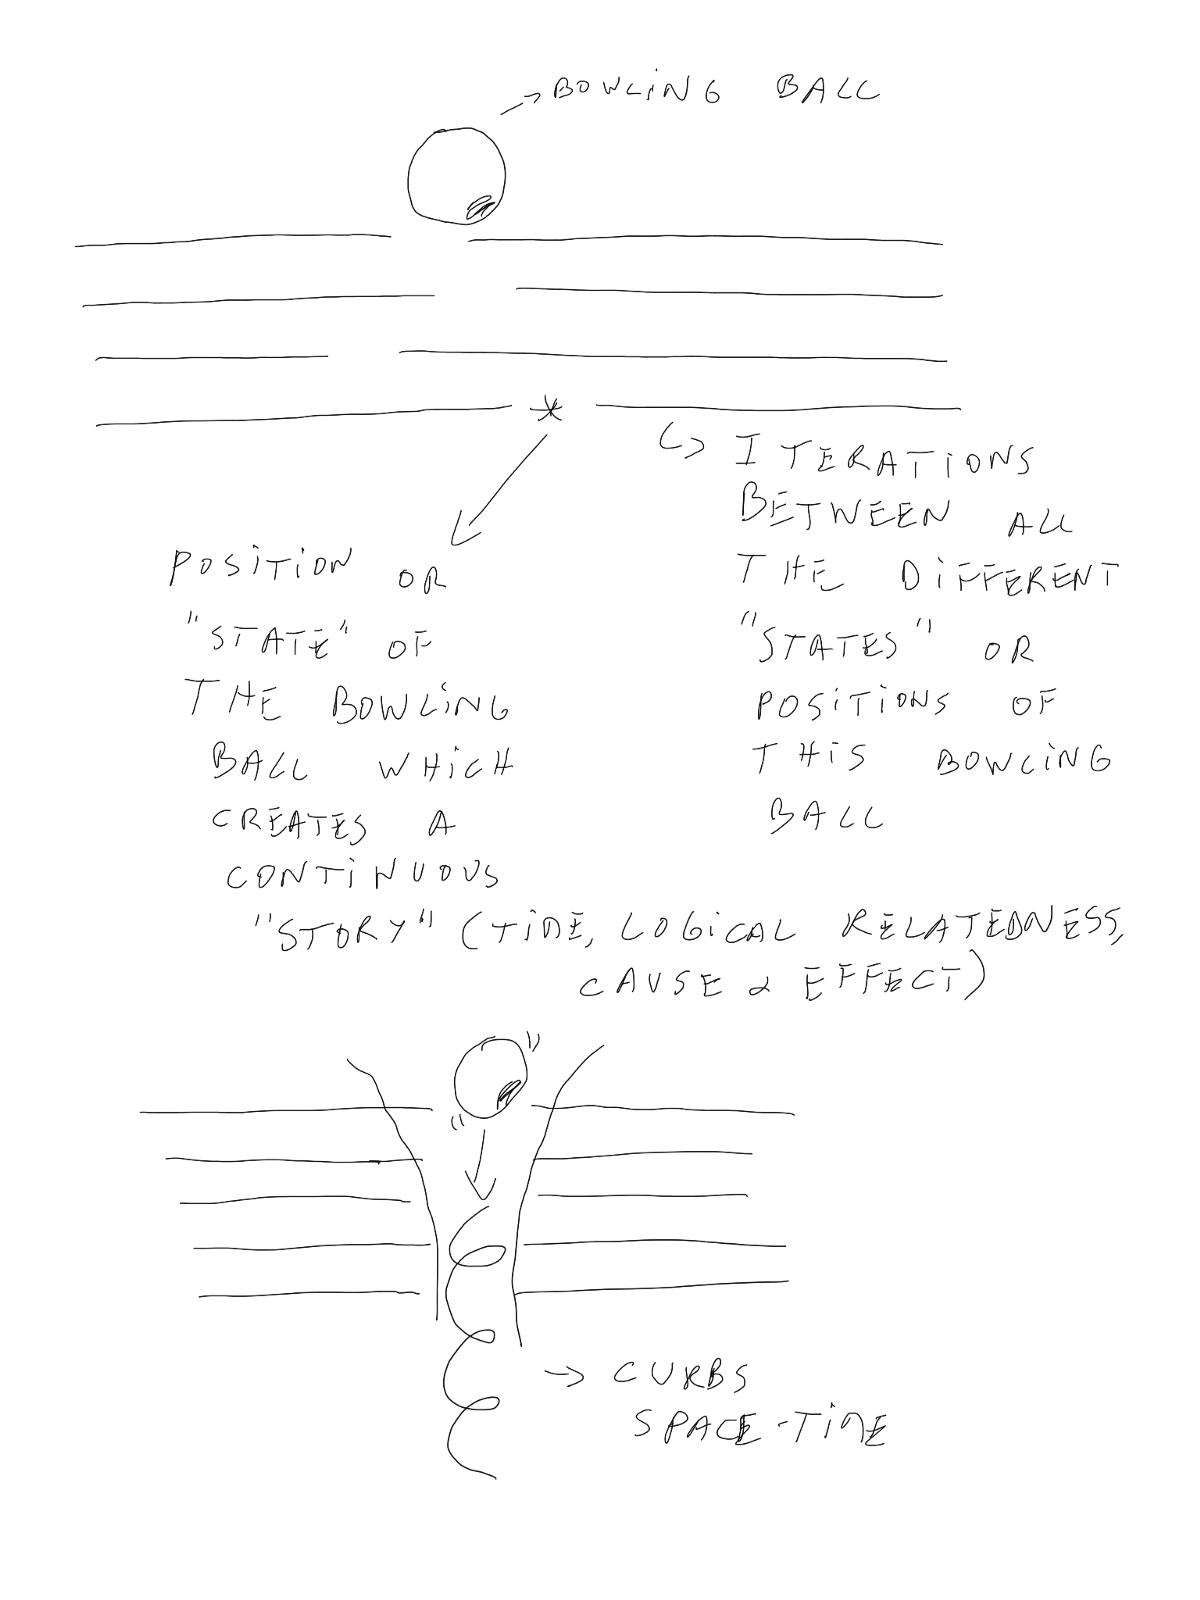 BOWLING BALL
ITERATIONS
BETWEEN ALL
THE DIFFERENT
"STATES" OR
POSITIONS OF
THIS BOWLING
BALL
POSITION OR
"STATE" OF
THE BOWLING
BALL WHICH
CREATES A
CONTINUOUS
"STORY" (TIME, LOGICAL RELATEDNESS,
CAUSE & EFFECT)
CURBS
SPACE-TIME